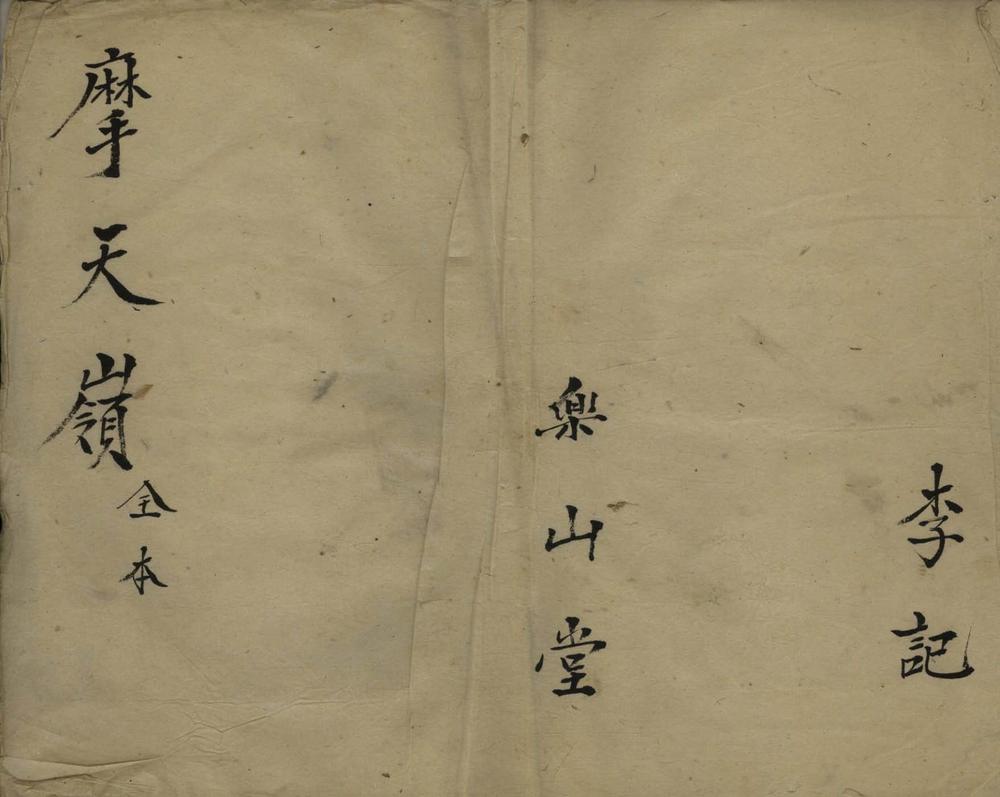 李記
樂山堂
摩天嶺
全本